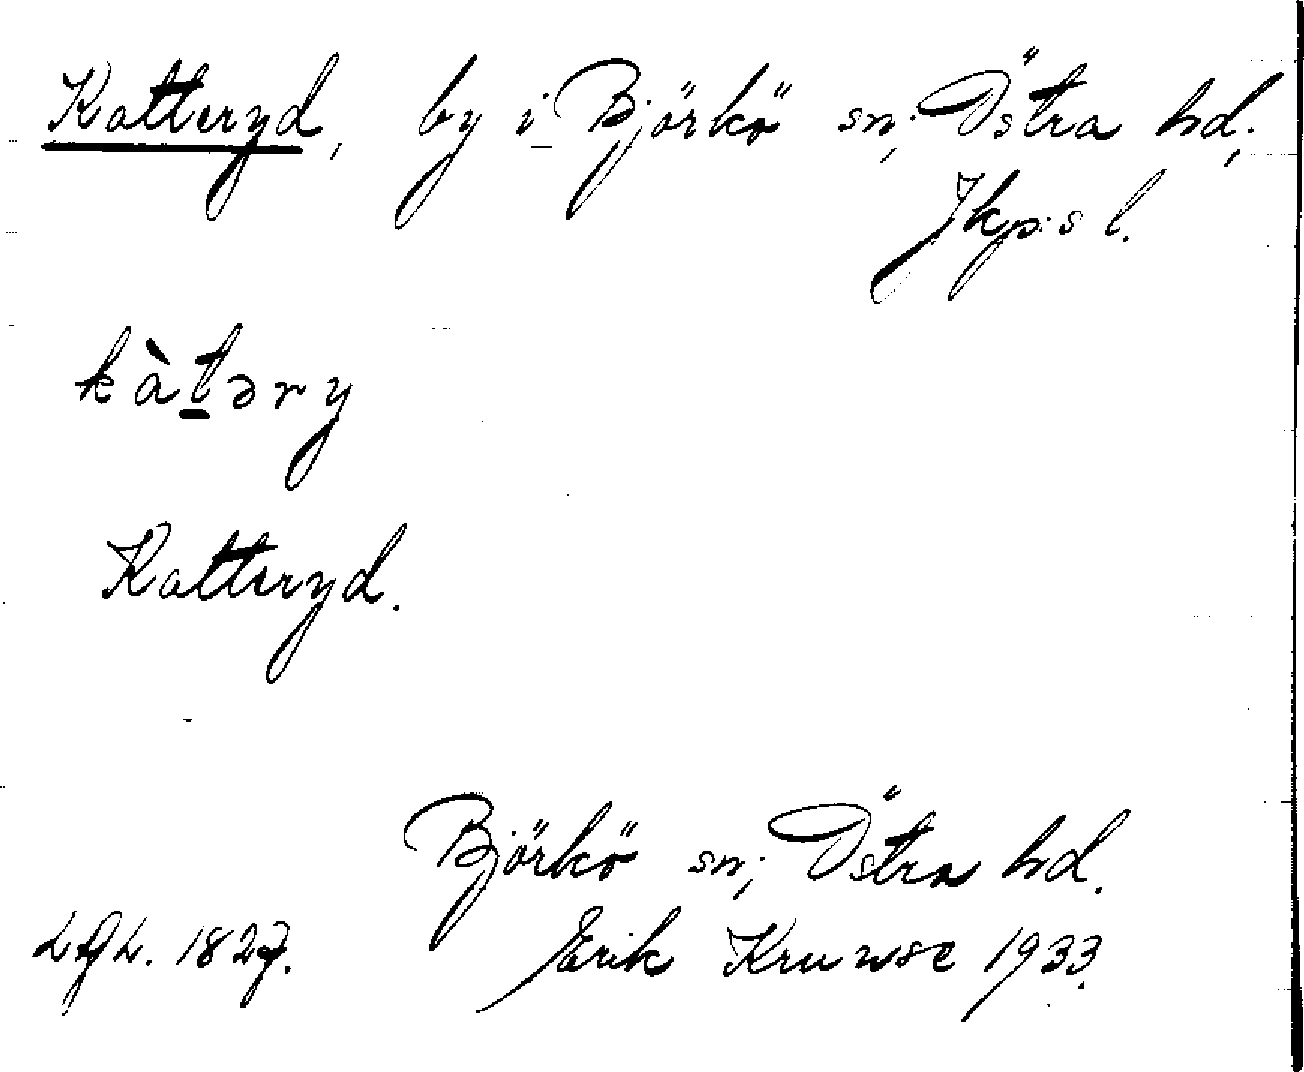 Katteryd, by i Björkö sn; Östra hd;
Jkp:s l.
kàtəry
Katteryd.
Björkö sn; Östra hd.
Erik Kruuse 1933.